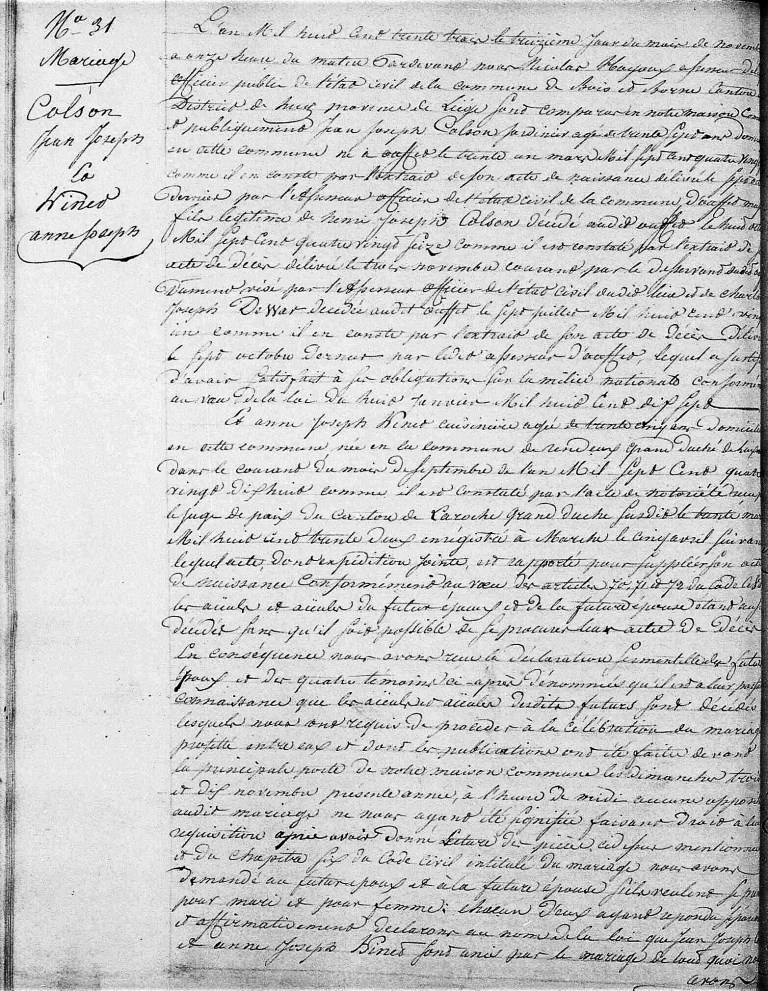 No 31
Mariage
Colson
Jean Joseph
Et
Kined
anne joseph
L'an Mil huit Cent trente trois le treizième Jour du mois de novem
a onze heure du matin Pardevant nous Nicolas assesseur
officier public de l'état civil de la commune de Bois et Borne Canton
District de huy province de Liège sont comparus en notre maison Com
et publiquement Jean Joseph Colson Jardinier agé de trente sept ans dom
en cette commune né a ouffet le trente un mars Mil sept cent quatre vingt
comme il en conste par l'extrait de son acte de naissance délivré le sept
dernier par l'assesseur officier de l'état civil de la commune d'ouffet
fils legitime de henri Joseph Colson décédé audit ouffet le huit
Mil sept Cent quatre vingt seize comme il est constaté par l'extrait de
acte de décès délivré le trois novembre courant par le desservant dudit
visé par l'assesseur officier de l'état civil dudit lieu et de charl
Joseph De War decedée audit ouffet le sept juillet Mil huit Cent vingt
un comme il en conste par l'extrait de son acte de décès Déliv
le sept octobre dernier par ledit assesseur d'ouffet, lequel a justif
d'avoir satisfait à ses obligations sur la milice nationale conformém
au vœu de la loi du huit Janvier Mil huit Cent dix sept
Et anne joseph Kined cuisinière agée de trente cinq ans Domicil
en cette commune née en la commune de rendeux Grand Duché de Lux
dans le courant du mois de septembre de l'an Mil Sept Cent quatre
vingt dix huit comme il est constaté par l'acte de notoriété
le juge de paix du Canton de Laroche Grand Duché susdit le trente mar
Mil huit cent trente deux enregistré à Marche le cinq avril suivan
lequel acte, dont expédition jointe, est rapporté pour suppléer son act
de naissance Conformément au vœu des articles 70, 71 et 72 du Code
les aïeuls et aïeules du futur époux et de la future épouse étant aus
décédés sans qu'il soit possible de se procurer leur acte de Décès
En conséquence nous avons reçu la déclaration sermentelle des futur
époux et des quatre temoins ci-après dénommés qu'il est a leur parf
connaissance que les aïeuls et aïeules desdits futurs sont decedés
lesquels nous ont requis de procéder à la Célébration du mariag
projetté entre eux et dont les publications ont été faites devant
la principale porte de notre maison commune les dimanches trois
et dix novembre presente année, à l'heure de midi aucune opposit
audit mariage ne nous ayant été signifiée faisant droit à leur
requisition après avoir donné lecture des pièces ci dessus mentionné
et du chapitre six du Code Civil intitulé du mariage nous avons
demandé au futur epoux et à la future epouse s'ils veulent se pren
pour mari et pour femme; chacun d'eux ayant repondu séparém
et affirmativement declarons au nom de la loi que Jean Joseph
et anne joseph Kined sont unis par le mariage de tout quoi nou
avons